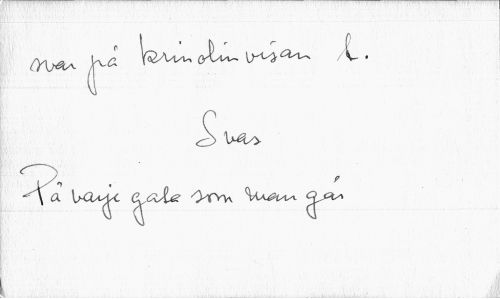 svar på krinolinvisan 1.
Svar
På varje gata som man går